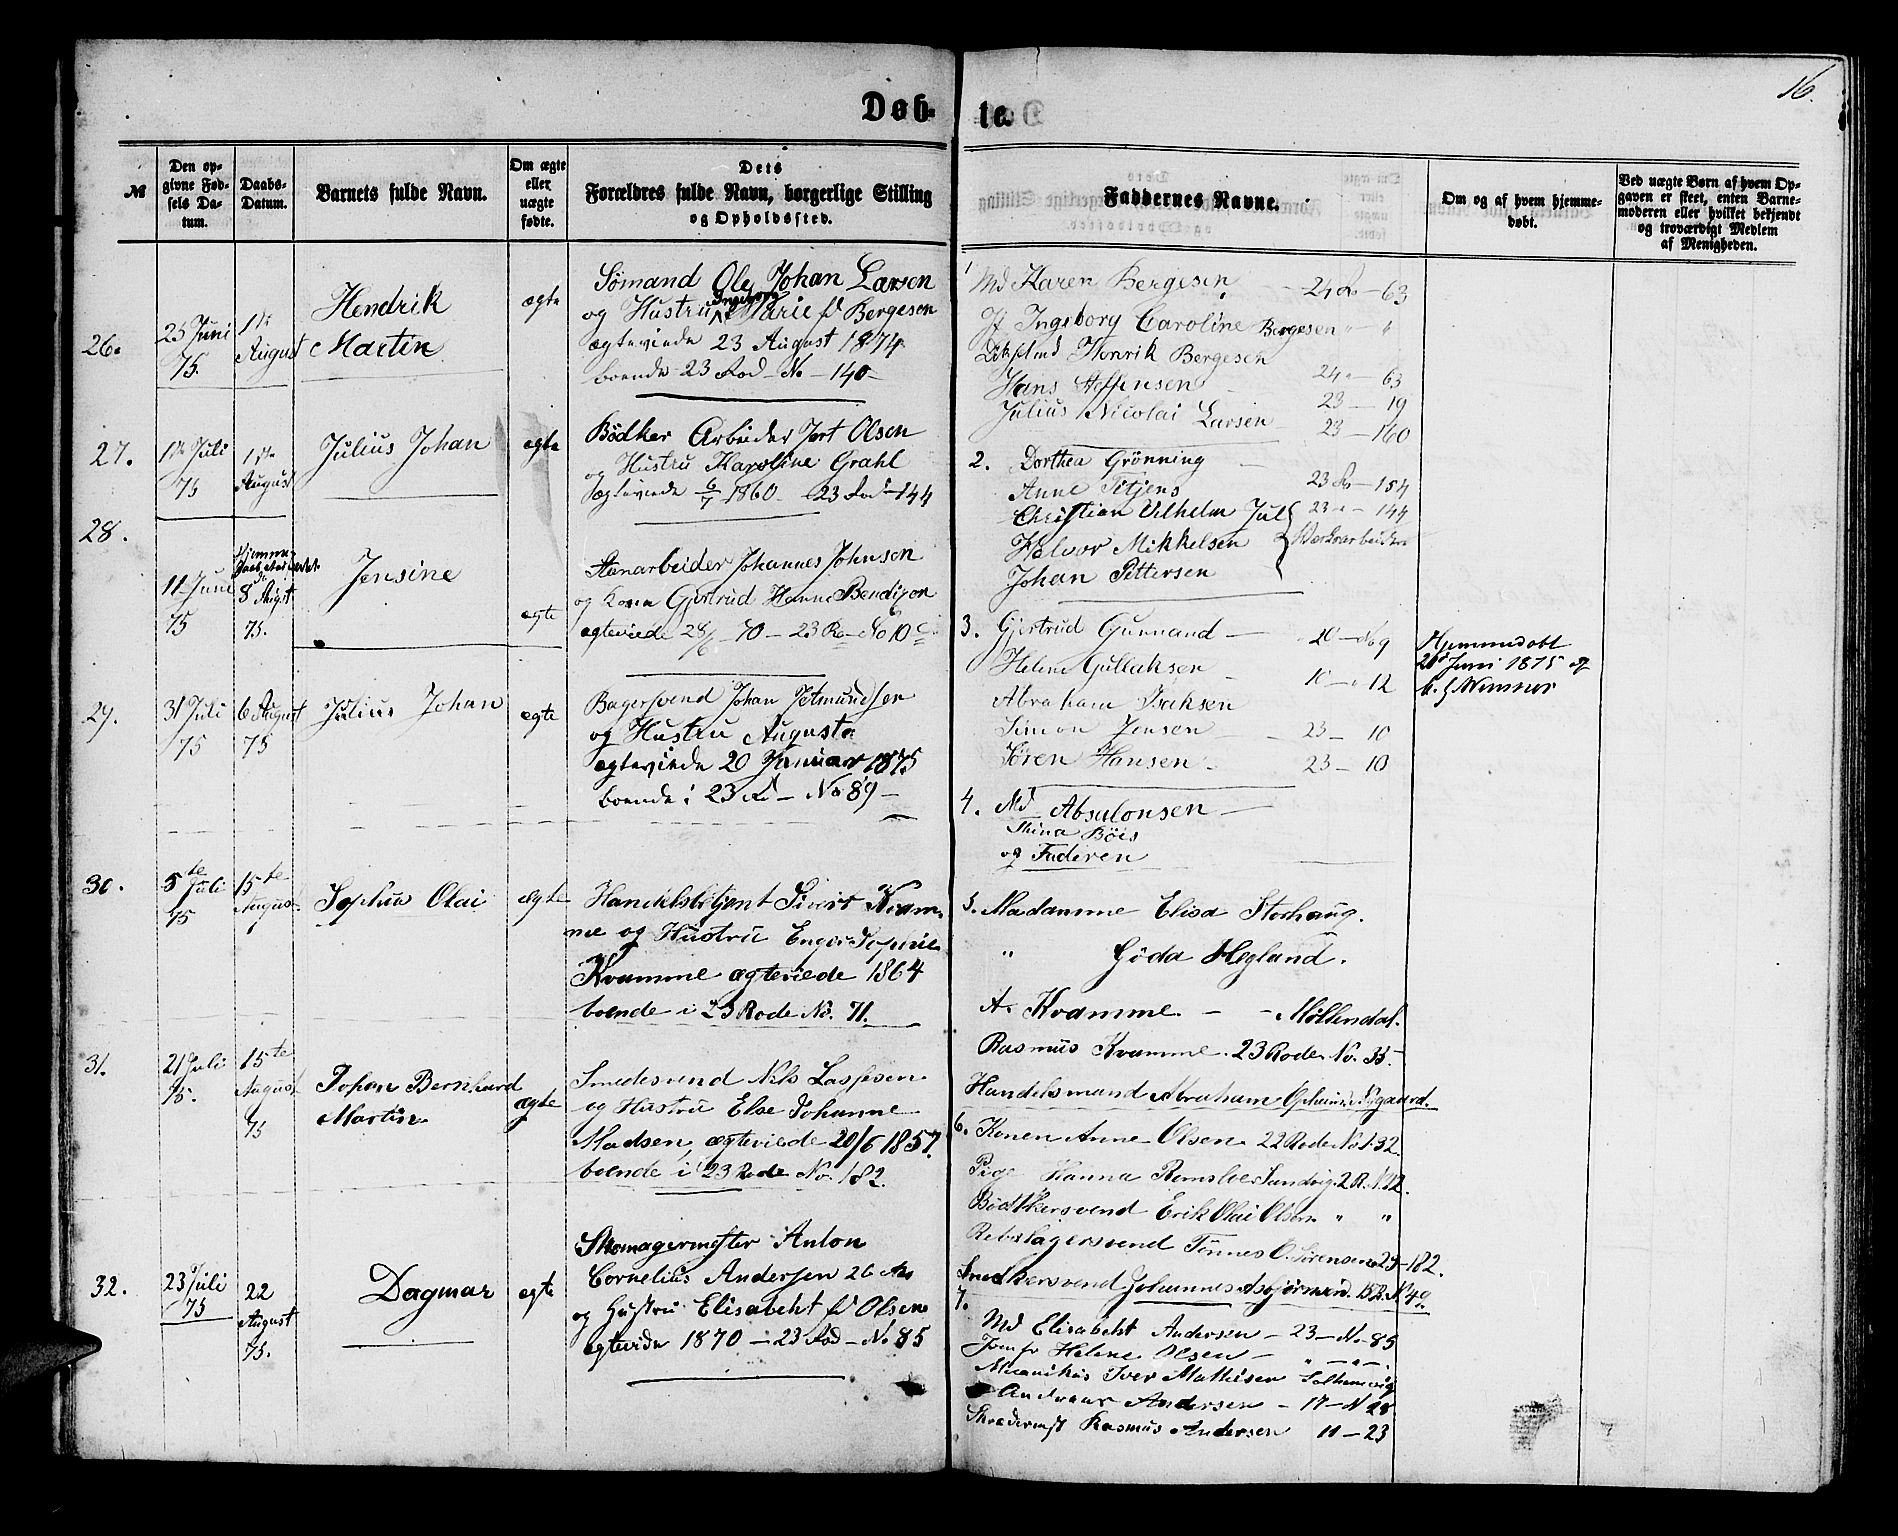 16.
Døb-
te.
№
Den op-
givne Fød-
sels Da-
tum.
Daabs-
Datum.
Barnets fulde Navn.
Om ægte
eller
uægte
fødte.
Dets
Forældres fulde Navn, borgerlige Stilling
og Opholdssted.
Faddernes Navne.
Om og af hvem hjemme-
døbt.
Ved uægte Børn af hvem Op-
gaven er skeet, enten Barne-
moderen eller hvilket bekjendt
og troværdigt Medlem
af Menigheden.
26.
25 Juni
75.
1ste
August
Hendrik
Martin
ægte
Sømand Ole Johan Larsen
og Hustru Ingeborg Marie f. Bergesen
ægteviede 23 August 1874
boende 23 Rod - No - 140 -
1
Md Karen Bergesen - 24 R - 63
Jf Ingeborg Caroline Bergesen " "
Henrik Bergesen 24 - 63
Hans Steffensen 23 - 19
Julius Nicolai Larsen 23 - 160
27.
1ste Juli
75
1ste
August
Julius Johan
ægte
Bødker Arbeider Olsen
og Hustru Karoline Grahl
ægteviede 6/7 1860 - 23 Rod - 144
2.
Dorthea Grønning
Anne Titjens 23 R - 154
Christian Vilhelm Jul 23 - 144
Halvor Mikkelsen
Johan Pettersen
28.
11 Juni
75
8 August
75.
Jensine
ægte
Stenarbeider Johannes Johnsen
og Kone Gjertrud Hanne Bendixen
ægteviede 28/ 70 - 23 Ro - No 10 c
3.
Gjertrud Gunnand - 20 - No 9
Helene Gullaksen 10 - 12
Abraham Isaksen
Simon Jensen - 23 - 10
Søren Hansen - 23 - 10
Hjemmedøbt
Juni 1875 af
29.
31 Juli
75
6 August
75
Julius Johan
ægte
Bagersvend Johan Jetmundsen
og Hustru Augusta
ægteviede 20 Januar 1875
boende i 23 R - No 89 -
4.
Md Absalonsen -
Stina Böes
og Faderen
30.
5te
Juli
75
15te
August
Sophus Olai
ægte
Handelsbetjent Sivert Kvam-
me og Hustru Enger Sophie
Kvamme ægteviede 1864
boende i 23 Rode No. 71.
5.
Madamme Elisa Storhaug.
" Göda Hegland.
A. Kvamme - - Møllendal.
Rasmus Kvamme. 23 Rode No. 35
Handelsmand Abraham Opheim. Nygaard.
31.
21 Juli
75.
15te
August
75
Johan Bernhard
Martin
ægte
Smedesvend Nils Laspesen
og Hustru Else Johanne
Madsen, ægteviede 20/6 1857.
boende i 23 Rode No. 182.
6.
Konen Anne Olsen. 22 Rode No. 132
Pige Hanna Sandvig. 2 R. N 22.
Bødkersvend Erik Olai Olsen " "
Rebslagersvend Tönnes O. Sörensen 23 - 182.
Snedkersvend Johannes
32.
23 Juli
75
22
August
75.
Dagmar
ægte
Skomagermester Anton
Cornelius Andersen 26 Aar
og Hustru Elisabeht f. Olsen
ægtevide 1870 - 23 Rod - No 85
7.
Md Elisabeht Andersen - 23 - No - 85
Jomfr Helene Olsen - " - " -
Mecanikus Iver Mathisen
Andersen - 17 - N 28
Skrædermst Rasmus Andersen 11 - 23